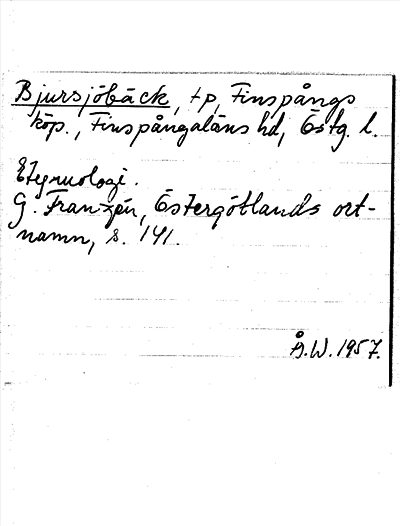 Bjursjöbäck, tp, Finspångs
köp., Finspångaläns hd, Östg. l.
Etymologi.
G. Franzén, Östergötlands ort-
namn, s. 141.
Å.W. 1957.